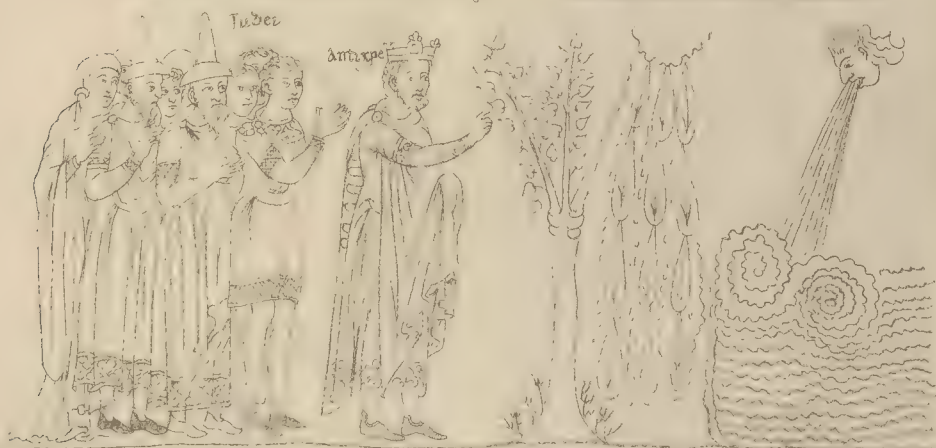 Iudei
antixpe